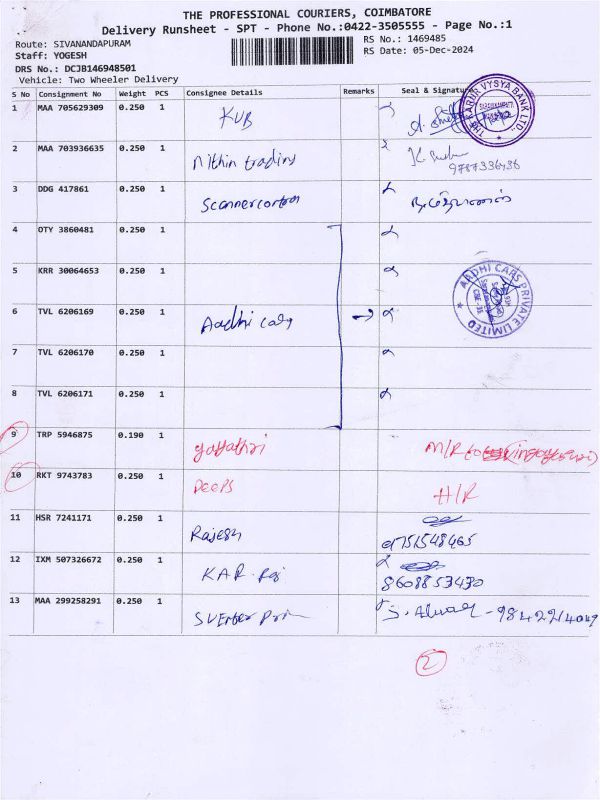 THE PROFESSIONAL COURIERS, COIMBATORE
Delivery Runsheet - SPT - Phone No.:0422-3505555 - Page No.:1
Route: SIVANANDAPURAM
RS No.: 1469485
Staff: YOGESH
RS Date: 05-Dec-2024
DRS No.: DCJB146948501
Vehicle: Two Wheeler Delivery
S No Consignment No Weight PCS Consignee Details Remarks Seal & Signature
1 MAA 705629309 0.250 1 KUB
THE KARUR VYSYA BANK LTD.,
2 MAA 703936635 0.250 1 Nithin trading
9787336436
3 DDG 417861 0.250 1
4 OTY 3860481 0.250 1
5 KRR 30064653 0.250 1
6 TVL 6206169 0.250 1 Aadhi cars
AADHI CARS PRIVATE LIMITED
7 TVL 6206170 0.250 1
8 TVL 6206171 0.250 1
9 TRP 5946875 0.190 1 gayathri
10 RKT 9743783 0.250 1 Deeps H/R
11 HSR 7241171 0.250 1 Rajesh
9751548465
12 IXM 507326672 0.250 1 KAR. Raj
8608853430
13 MAA 299258291 0.250 1
2